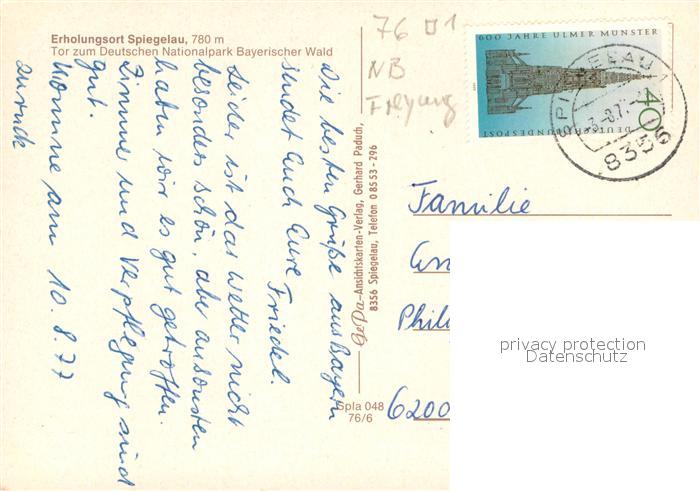 Erholungsort Spiegelau, 780 m
Tor zum Deutschen Nationalpark Bayerischer Wald
Die besten Grüße aus Bayern
sendet Euch Eure
Friedel.
Leider ist das Wetter nicht
besonders schön, aber ansonsten
haben wir es gut getroffen.
Zimmer und Verpflegung sind
gut.
Komme am 10.8.77
zurück
GePa-Ansichtskarten-Verlag, Gerhard Paduch,
8356 Spiegelau, Telefon 0 85 53 - 296
Spla 048
76/6
76 01
NB
Freyung
600 JAHRE ULMER MÜNSTER
DEUTSCHE BUNDESPOST
40
SPIEGELAU 1
8356
Familie
Phili
6200
privacy protection
Datenschutz